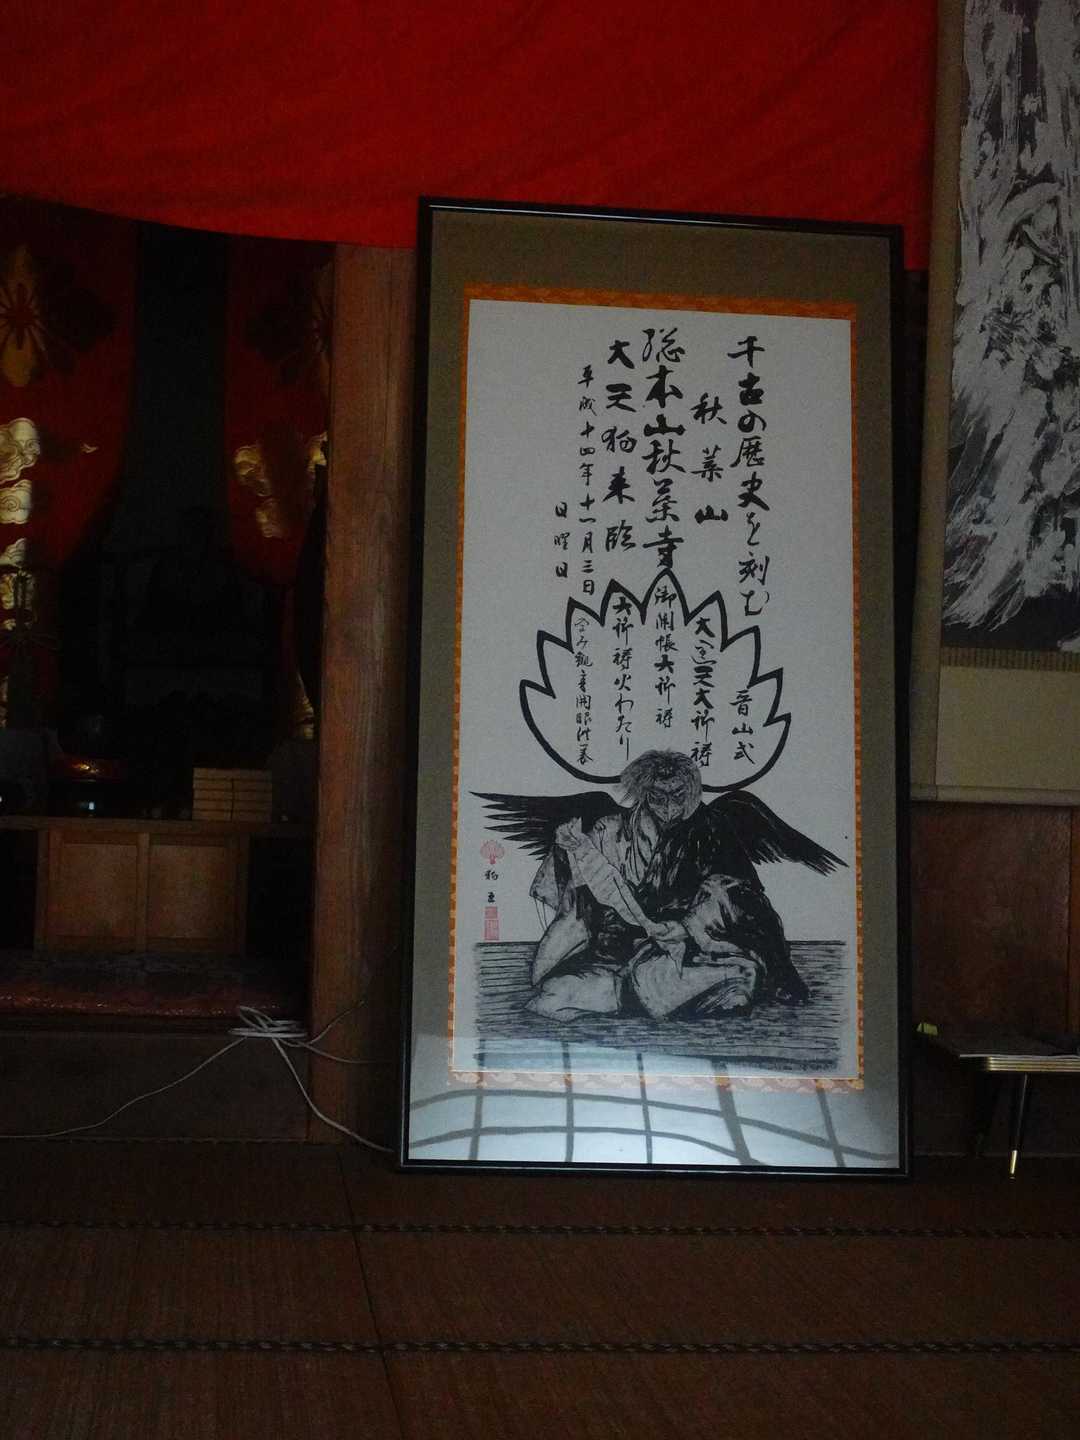 千古の歴史を刻む
秋葉山
総本山秋葉寺
大天狗来臨
平成十四年十一月三日
日曜日
晋山式
大祈祷
御開帳大祈祷
大祈祷火わたり
観音開眼法要